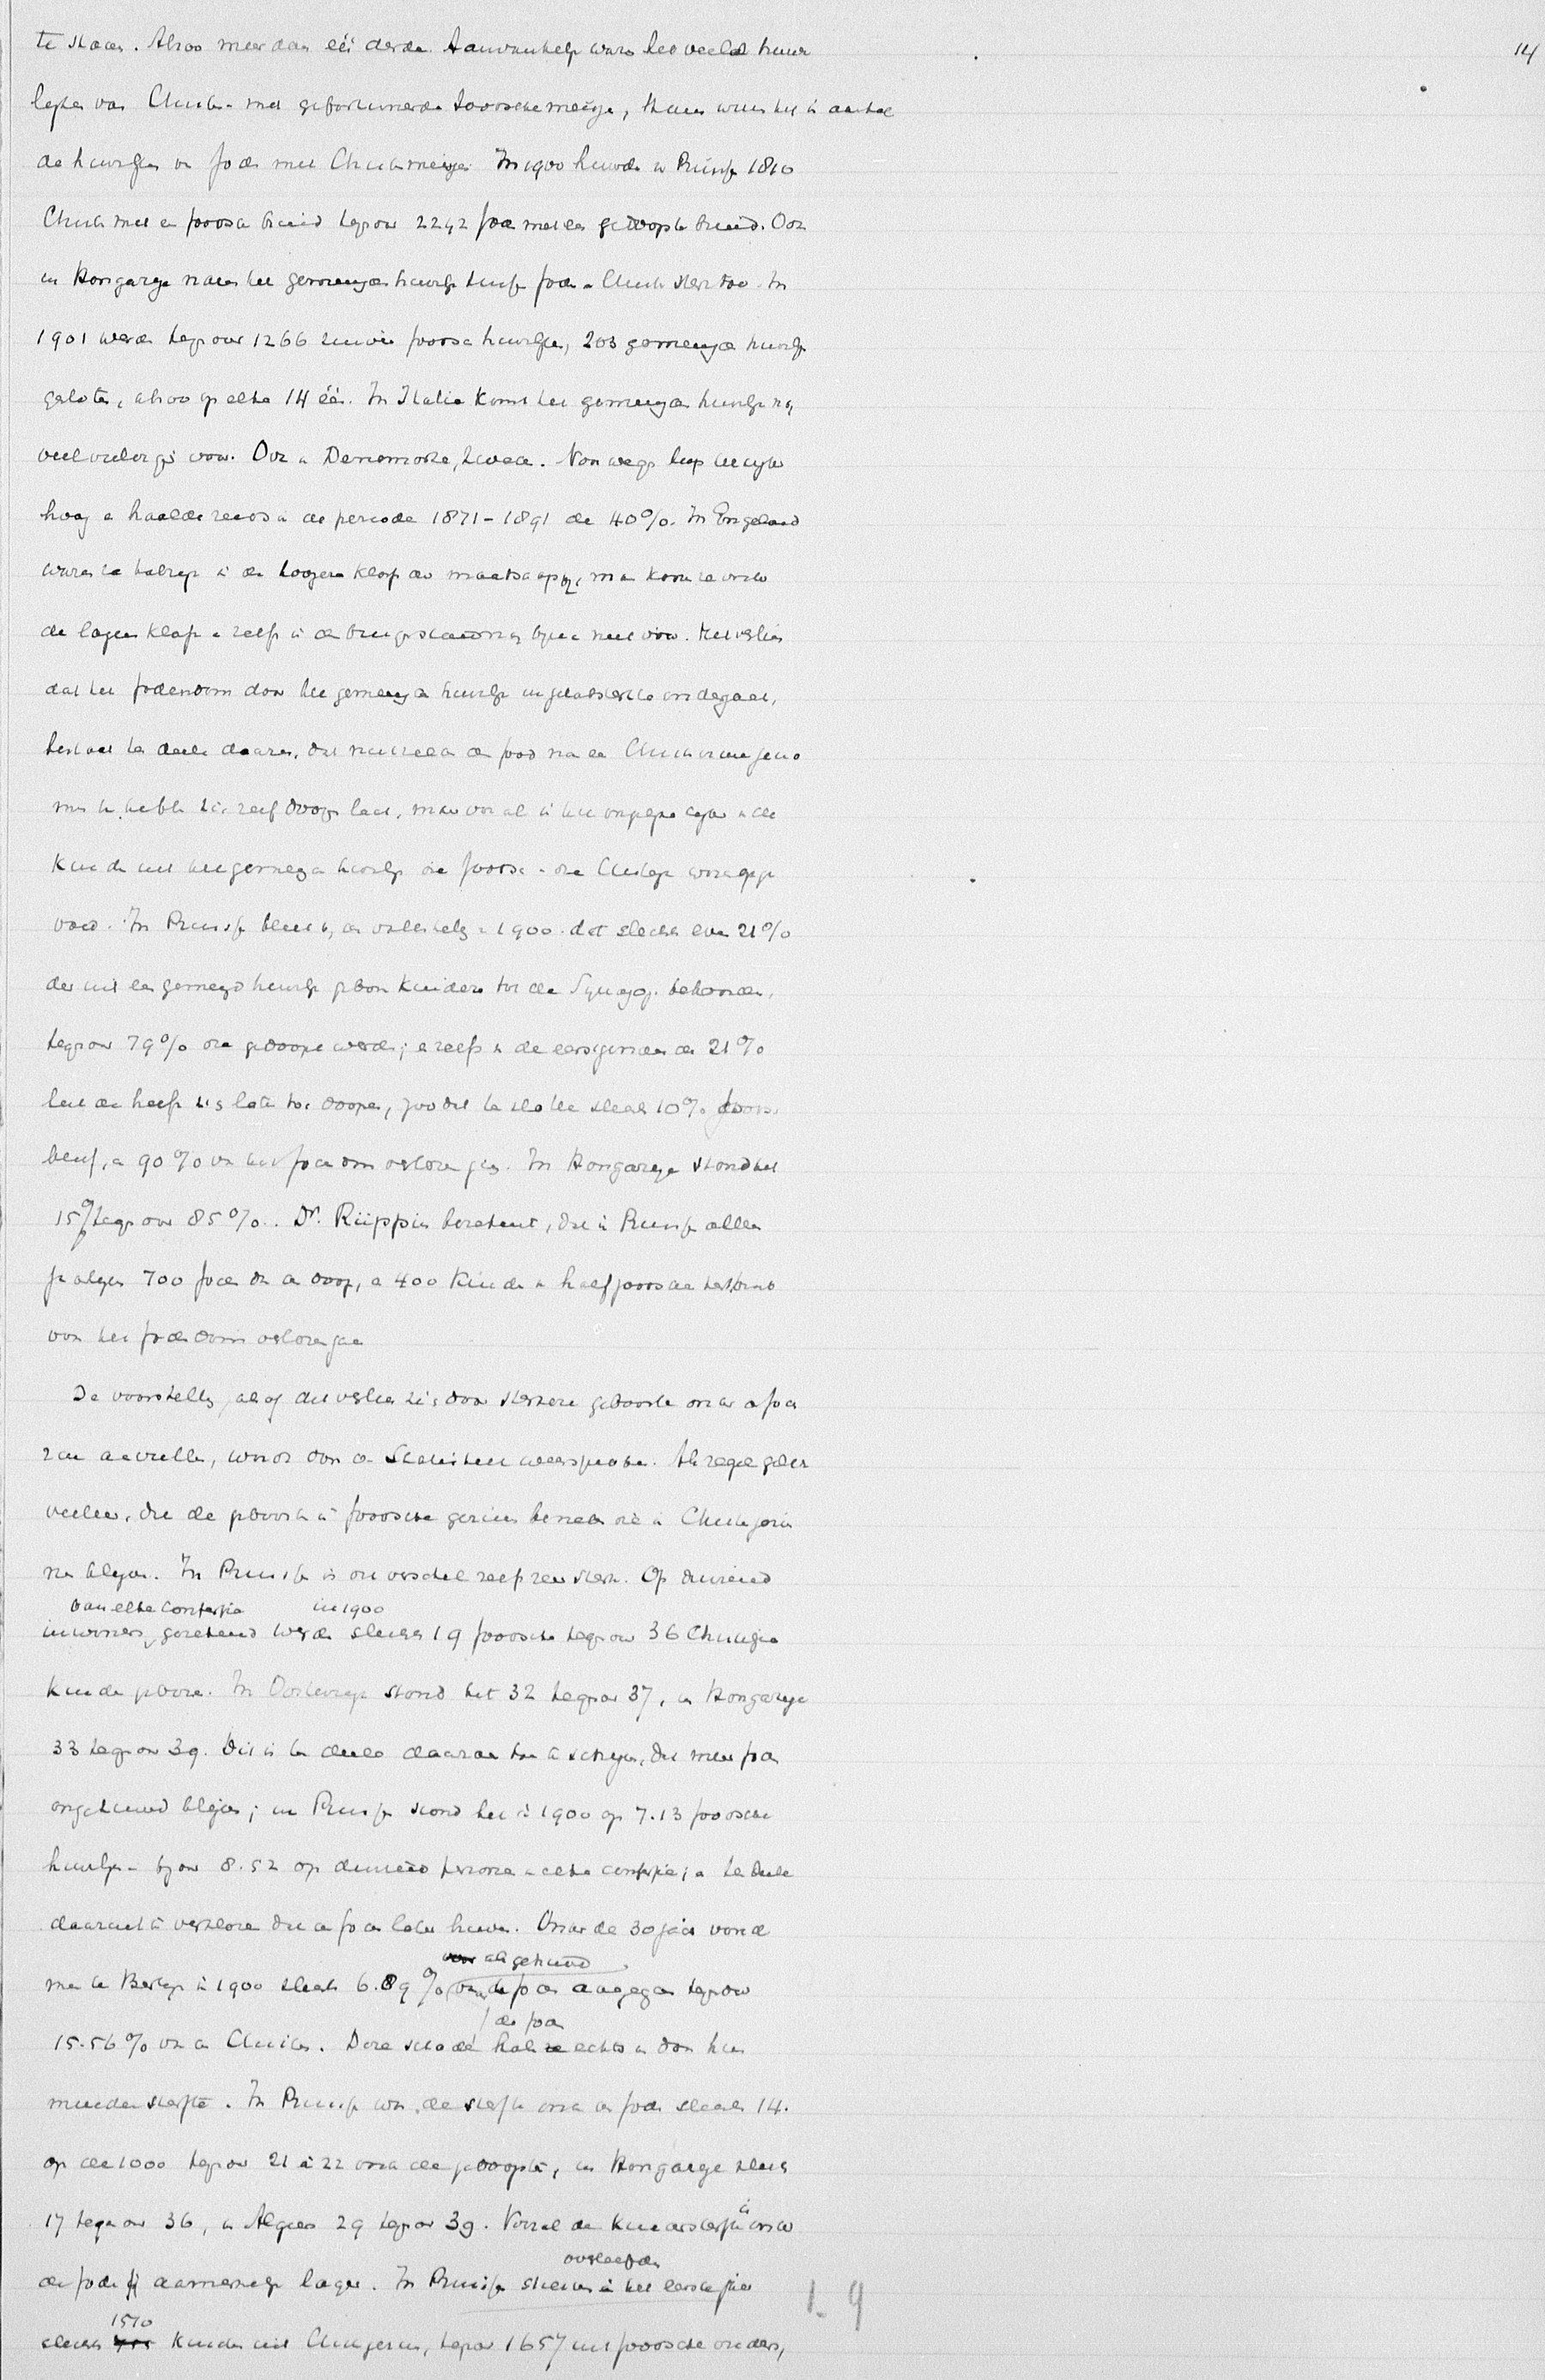 14
te staan. Alzoo meer dan één derde. Aanvankelijk waren het veelal huwe
lijken van Christen- met gefortuneerde Joodsche meisjes, thans wint het in aantal
de huwlijken van Joden met Christenmeisjes. In 1900 huwden in Pruisen 1810
Christ met en Joodsch bruid tegenover 2242 Joden met een gedoopte bruid. Ook
in Hongarije nam het gemengde huwlijk tusschen Joden en Christ sterk toe. In
1901 werden tegenover 1266 zuiver Joodsche huwlijken, 203 gemengde huwlijk
gesloten, alzoo op elke 14 één. In Italie komt het gemengde huwlijk nog
veelvuldiger voor. Ook in Denemarken, Zweden. Noorwegen liep het cijfer
hoog en haalde reeds in de periode 1871-1891 de 40%. In Engeland
waren ze talrijk in de hoogere klasse der maatschappij, maar komen ze onder
de lagere klasse en zelfs in de burgerstand nog bijna niet voor. Het verlies
dat het Jodendom door het gemengde huwlijk ongetwijfeld ondergaat,
bestaat ten deele daarin, dat niet zelden de Jood na en Christenvrouw genomen
te hebben zich zelf doopen laat, maar vooral in het ongelijke cijfer der
kinderen uit het gemengde huwlijk die Joodsch en die Christelijk worden opge
voed. In Pruisen bleek bij de volkstelling in 1900 dat slechts even 21%
der uit een gemengd huwlijk geboren kinderen tot de Synagoge behoorden,
tegenover 79% die gedoopt werden; en zelfs van de eerstgenoemde 21%
liet de helft zich later toch doopen, zoodat ten slotte slechts 10% Joodsch
bleef, en 90% van het Jodendom verloren ging. In Hongarije stond het
15% tegenover 85%. Dr. Rüppin berekent, dat in Pruisen alleen
jaarlijks 700 Joden door den doop, en 400 kinderen in half Joodsche
voor het Jodendom verloren gaan
De voorstelling, alsof dit verlies zich door sterkere geboorte onder de Joden
zou aanvullen, wordt door de Statistiek weersproken. Als regel geldt
veeleer, dat de geboorte in Joodsche gezinnen beneden die in Christengezin
nen blijven. In Pruisen is dit verschil zelfs zeer sterk. Op duizend
van elke Confessie in 1900
inwoners gerekend werden slechts 19 Joodsche tegenover 36 Christelijke
kinderen geboren. In Oostenrijk stond het 32 tegenover 37, in Hongarije
33 tegenover 39. Dit is ten deele daaraan toe te schrijven, dat meer Joden
ongehuwd blijven; in Pruisen stond het in 1900 op 7.13 Joodsche
huwlijken tegenover 8.52 op duizend personen van elke confessie; en ten deele
daaruit te verklaren dat de Joden later huwen. Onder de 30 jaar vond
als gehuwd
men te Berlijn in 1900 slechts 6.89 % van de Joden aangegeven tegenover
de Joden
15.56% van de Christenen. Deze schade halen echter in door hun
minder sterfte. In Pruisen was de sterfte onder de Joden slechts 14.
op de 1000 tegenover 21 à 22 onder de gedoopten, in Hongarije slechts
17 tegenover 36, in Algiers 29 tegenover 39. Vooral de kindersterfte is onder
de Joden aanmerkelijk lager. In Pruisen stierven in het eerste jaar
overleefden
1510
slechts kinderen uit Christgezinnen, tegenover 1657 uit Joodsche ouders,
1-9